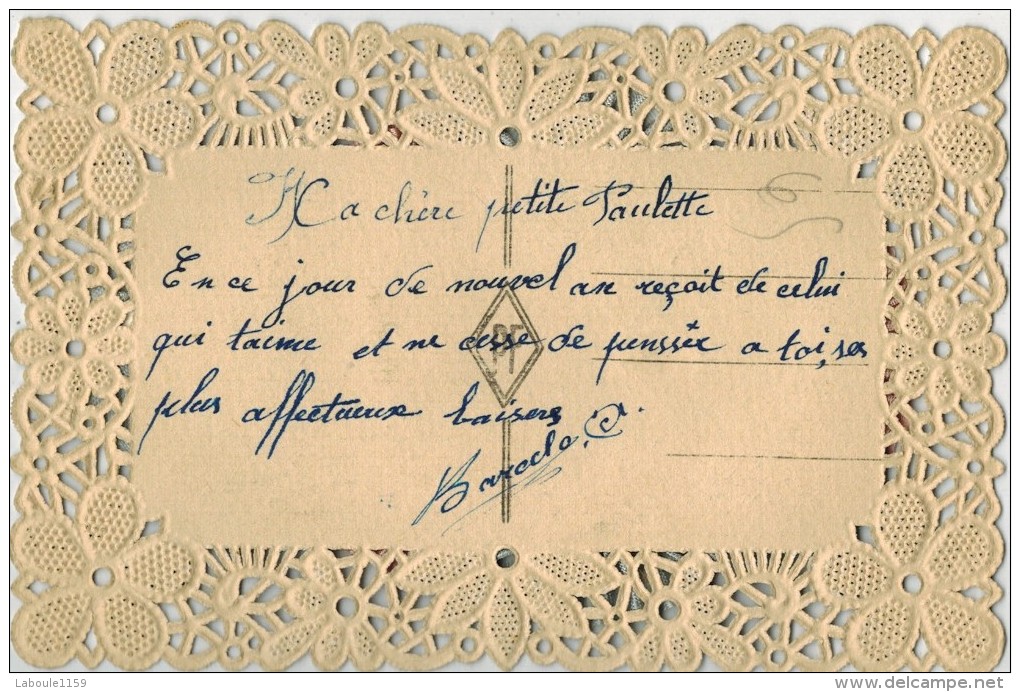 Ma chère petite Paulette
En ce jour de nouvel an reçoit de celui
qui taime et ne cesse de penssée a toi, ses
plus affectueux baisers
PF
Laboule1159
www.delcampe.net